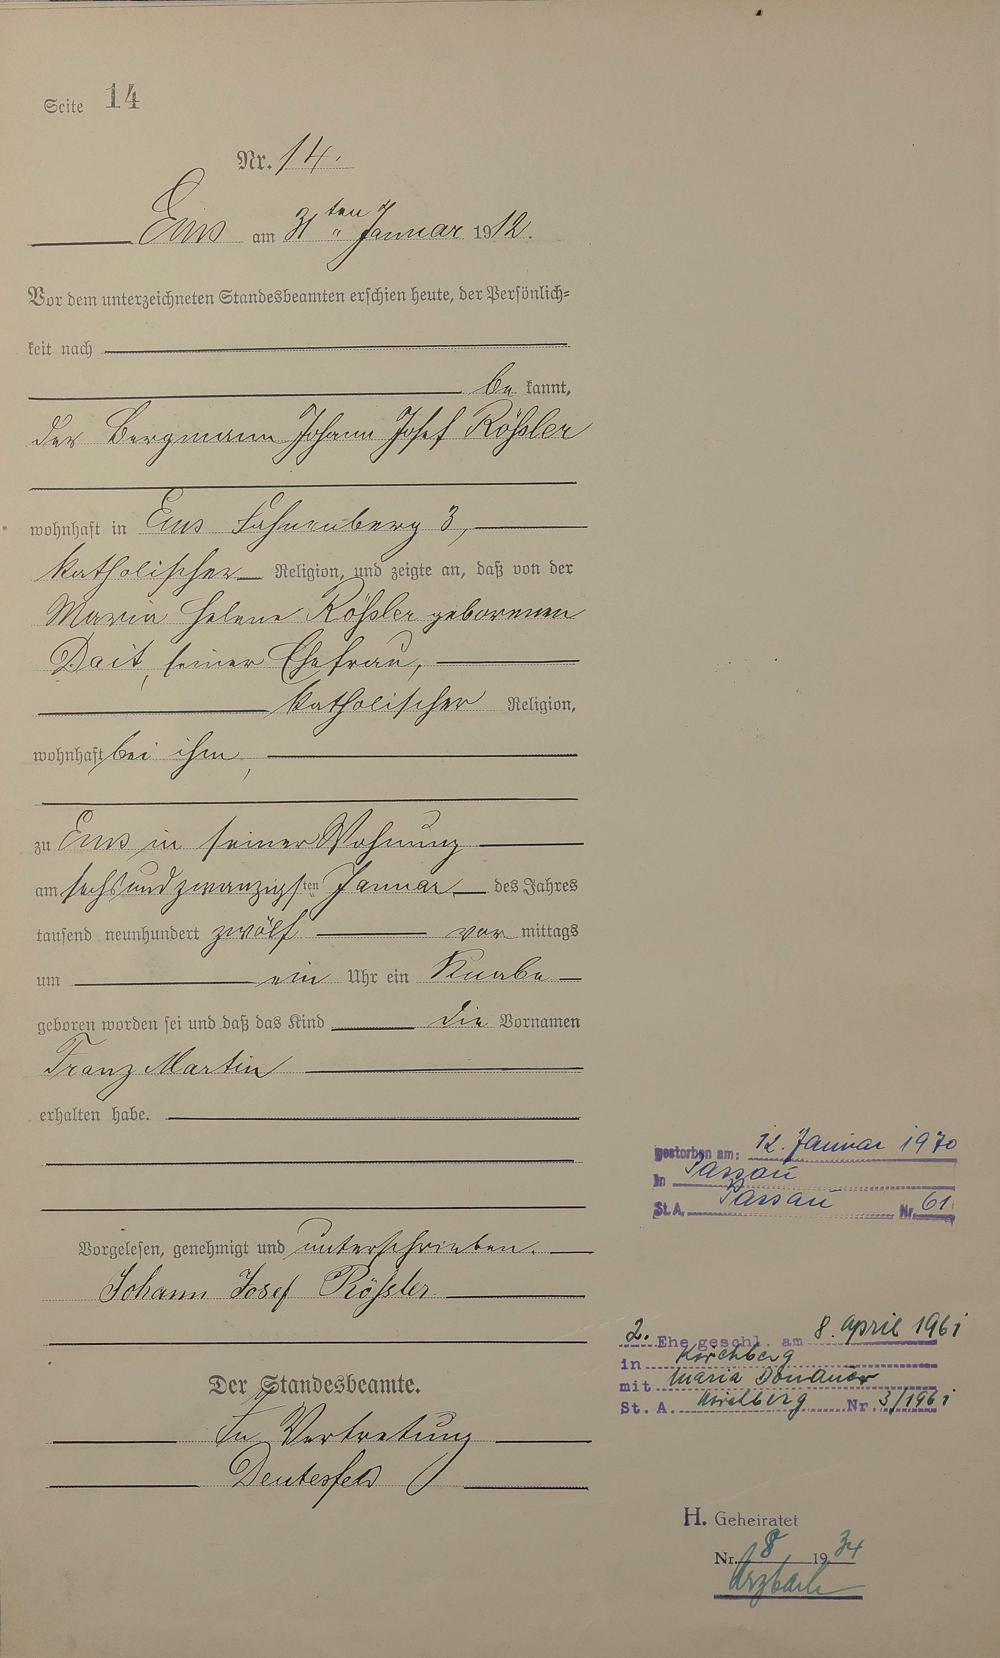 Seite 14
Nr. 14.
Ems am 31ten Januar 1912.
Vor dem unterzeichneten Standesbeamten erschien heute, der Persönlich-
keit nach
be kannt,
der Bergmann Johann Josef Rößler
wohnhaft in Ems Fahnenberg 3,
katholischer Religion, und zeigte an, daß von der
Maria Helene Rößler geborenen
Dait, seiner Ehefrau,
katholischer Religion,
wohnhaft bei ihm,
zu Ems in seiner Wohnung
am sechsundzwanzigsten Januar des Jahres
tausend neunhundert zwölf vor mittags
um ein Uhr ein Knabe
geboren worden sei und daß das Kind die Vornamen
Franz Martin
erhalten habe.
gestorben am: 12. Januar 1970
in Passau
St.A. Passau Nr. 61
Vorgelesen, genehmigt und unterschrieben.
Johann Josef Rößler
2. Ehe geschl. am 8. April 1961
in Kirchberg
mit Maria Donauer
St. A. Kirchberg Nr. 3/1961
Der Standesbeamte.
In Vertretung
Deutesfeld
H. Geheiratet
Nr. 8 1934
Arzbach